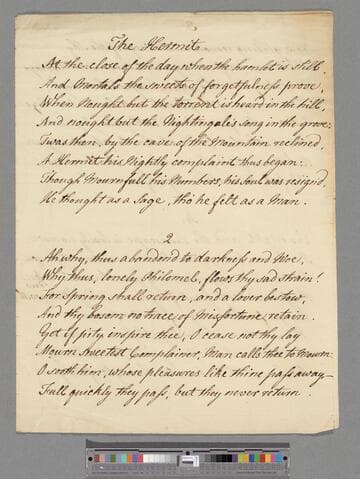 The Hermit
At the close of the day when the hamlet is still
And Mortals the sweets of forgetfulness prove,
When Nought but the torrent is heard in the hill
And nought but the Nightingale's song in the grove;
Twas then, by the cave of the Mountain reclined,
A Hermit his Nightly complaint thus began:
Though Mournfull his Numbers, his Soul was resign'd,
He thought as a Sage, tho' he felt as a Man.
2
Ah why, thus abandond to darkness and Woe,
Why thus, lonely Philomel, flows thy sad strain!
For Spring shall return, and a lover bestow,
And thy bosom no trace of Misfortune retain.
Yet if pity inspire thee, O cease not thy lay
Mourn Sweetest Complainer, Man calls thee to Mourn:
O sooth him, whose pleasures like thine pass away—
Full quickly they pass, but they never return.